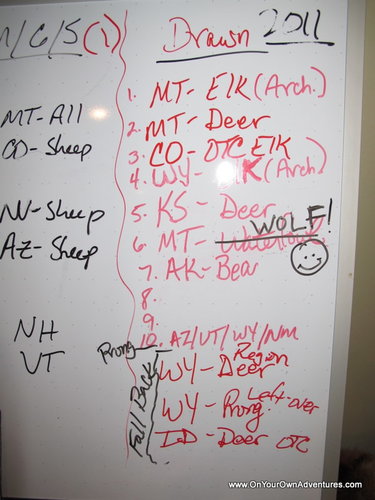 M/G/S (1)
MT-All
CO-Sheep
NV-Sheep
AZ-Sheep
NH
VT
Drawn 2011
1. MT-Elk (Arch.)
2. MT-Deer
3. CO-OTC Elk
4. WY-Elk (Arch)
5. KS-Deer
6. MT- WOLF!
7. AK-Bear
8.
9.
10. AZ/UT/WY/NM
Prong
Fall Back
WY-Deer Region
WY-Prong. Left-over
ID-Deer OTC
www.OnYourOwnAdventures.com